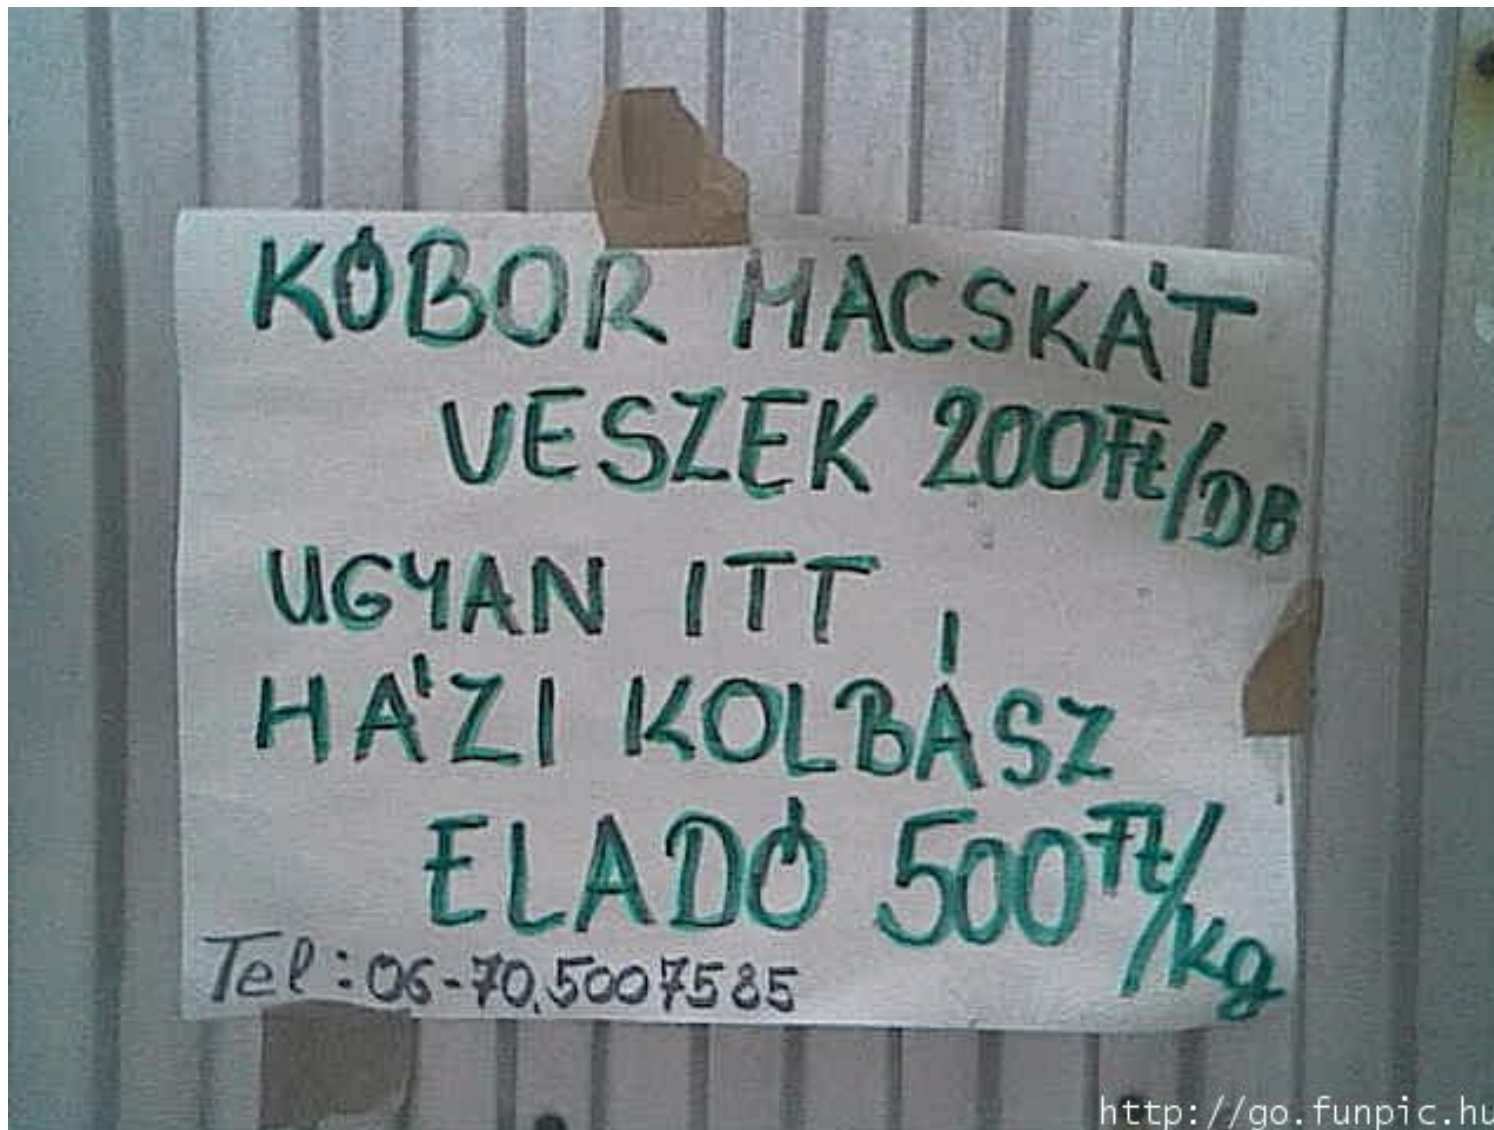 KÓBOR MACSKÁT
VESZEK 200Ft/DB
UGYAN ITT
HÁZI KOLBÁSZ
ELADÓ 500Ft/kg
Tel: 06-70,5007585
http://go.funpic.hu